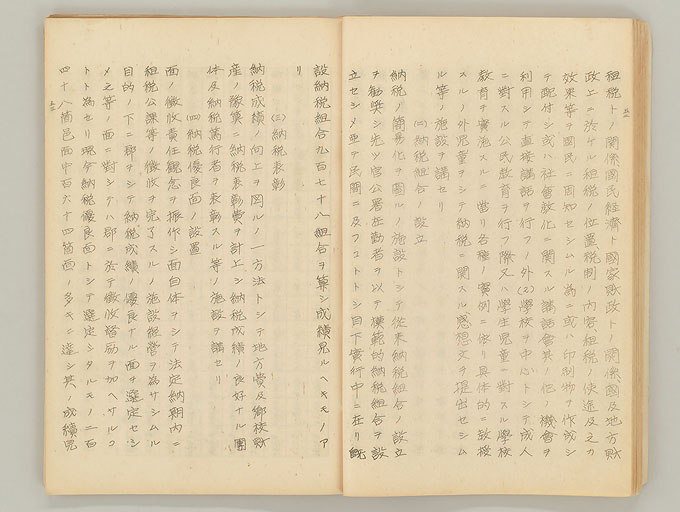 租税トノ関係国民経済ト国家財政トノ関係国及地方財
政上ニ於ケル租税ノ位置税制ノ内容租税ノ使途及之カ
効果等ヲ国民ニ周知セシムル為ニ或ハ印刷物ヲ作成シ
テ配付シ或ハ社会教化ニ関スル講話会其ノ他ノ機会ヲ
利用シテ直接講話ヲ行フノ外(2)学校ヲ中心トシテ成人
ニ対スル公民教育ヲ行フ際又ハ学生児童ニ対スル学校
教育ヲ実施スルニ当リ各種ノ実例ニ依リ具体的ニ
スルノ外児童ヲシテ納税ニ関スル感想文ヲ提出セシム
ル等ノ施設ヲ講セリ
(二)納税組合ノ設立
納税ノ簡易化ヲ図ルノ施設トシテ従来納税組合ノ設立
ヲ勧奨シ先ツ官公署在勤者ヲ以テ模範的納税組合ヲ設
立セシメ亜テ民間ニ及フコトトシ目下実行中ニ在リ既
設納税組合九百七十八組合ヲ算シ成績見ルヘキモノア
リ
納税表彰
納税成績ノ向上ヲ図ルノ一方法トシテ地方費及郷校財
産ノ予算ニ納税表彰費ヲ計上シ納税成績ノ良好ナル団
体及納税篤行者ヲ表彰スル等ノ施設ヲ講セリ
(四)納税優良面ノ設置
面ノ徴収責任観念ヲ振作シ面自体ヲシテ法定納期内ニ
租税公課等ノ徴収ヲ完了スルノ施設経営ヲ為サシムル
目的ノ下ニ郡ヲシテ納税成績ノ優良ナル面ヲ選定セシ
メ之等ノ面ニ対シテハ郡ニ於テ徴収督励ヲ加ヘサルコ
トト為セリ現今納税優良面トシテ選定シタルモノ二百
四十八箇邑面中百六十四箇面ノ多キニ達シ其ノ成績見